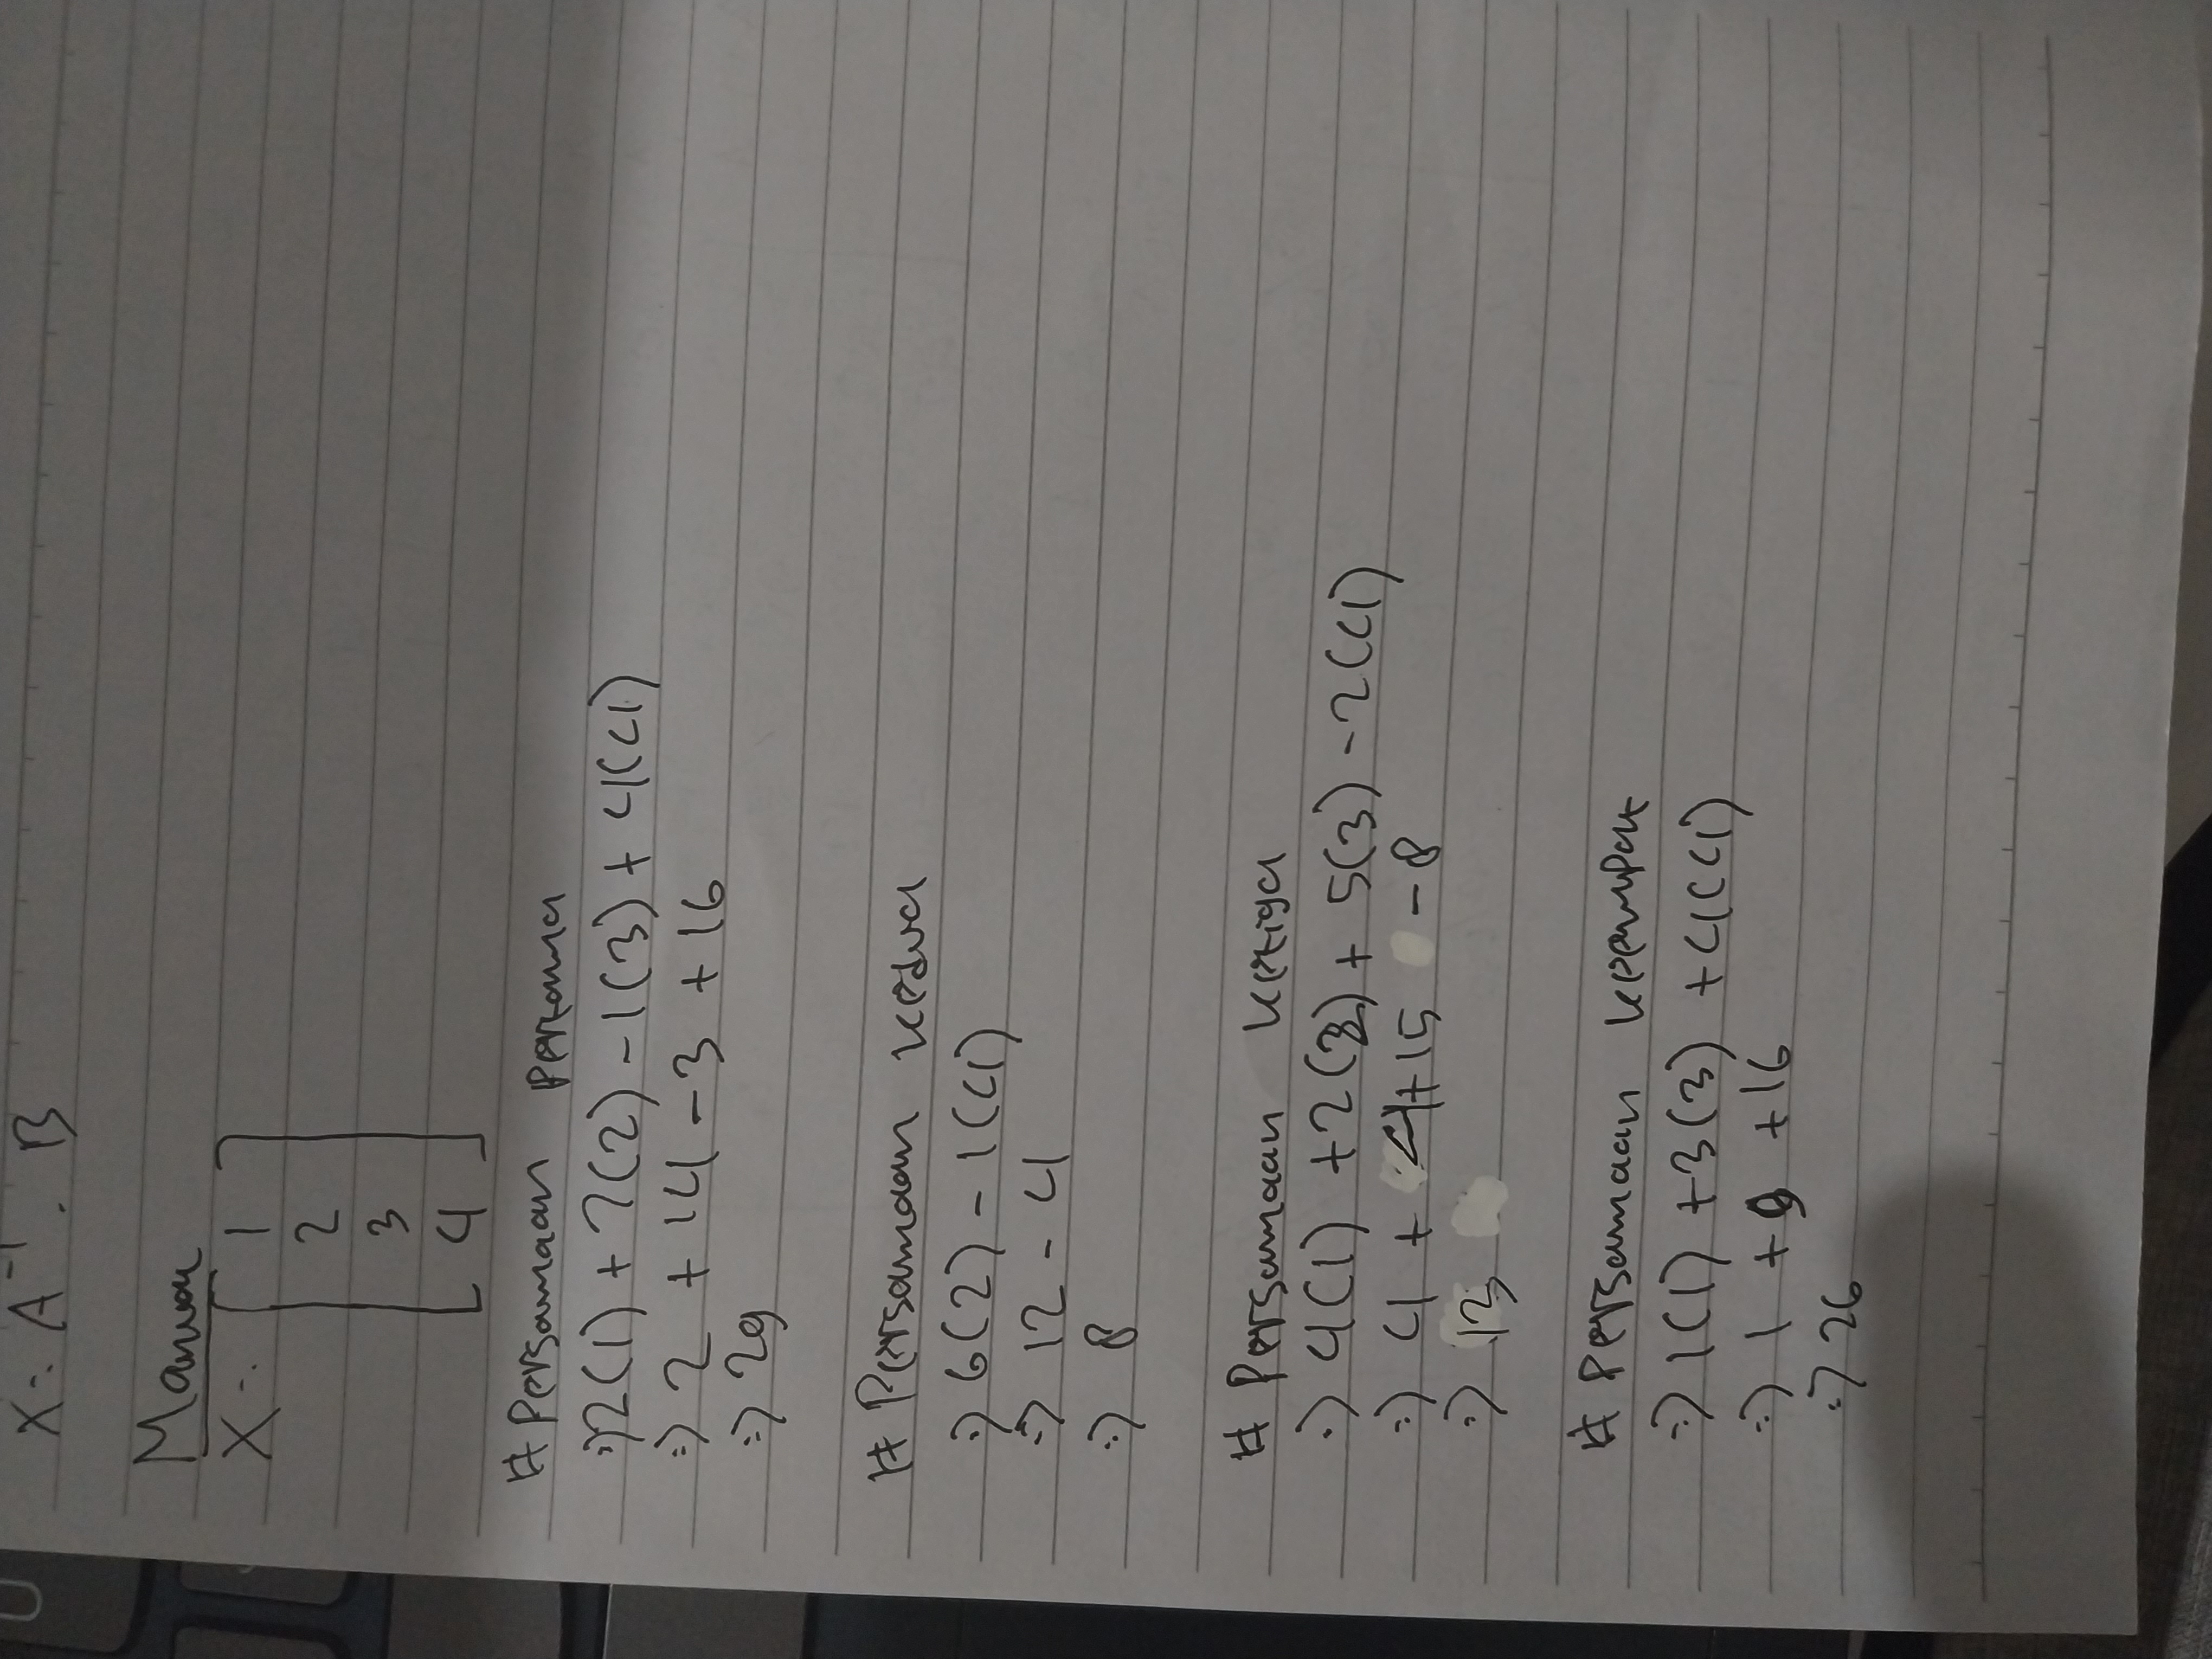 X = A⁻¹ . B
Manual
X = [ 1
2
3
4 ]
# Persamaan pertama
=> 2(1) + 7(2) - 1(3) + 4(4)
=> 2 + 14 - 3 + 16
=> 29
# Persamaan kedua
=> 6(2) - 1(4)
=> 12 - 4
=> 8
# Persamaan ketiga
=> 4(1) + 2(2) + 5(3) - 2(4)
=> 4 + 4 + 15 - 8
=> 13
# Persamaan keempat
=> 1(1) + 3(3) + 4(4)
=> 1 + 9 + 16
=> 26